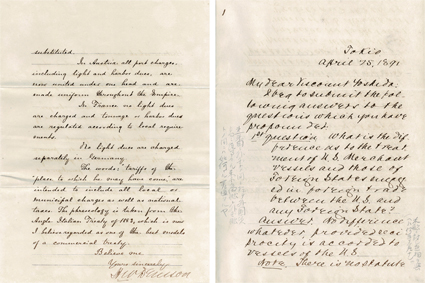 substituted.
In Austria all port charges,
including light and harbor dues, are
united under one head and are
made uniform throughout the Empire.
In France no light dues
are charged and tonnage or harbor dues
are regulated according to local require-
ments.
No light dues are charged
separately in Germany.
The words "tariffs of the
place to which he may have come, are
intended to include all local or
municipal charges as well as national
taxes. The phraseology is taken from the
Anglo Italian Treaty of 1883, which is now
I believe regarded as one of the best models
of a commercial treaty.
Believe me
Yours sincerely,
H W Denison
1
Tokio
April 25, 1891
My dear Viscount Yoshida
I beg to submit the fol-
lowing answers to the
questions which you have
propounded.
1st question What is the dif-
ference as to the treat-
ment of U.S. Merchant
vessels and those of
Foreign States engag-
ed in foreign trade
between the U.S. and
any Foreign State?
Answer. No difference
whatever, provided reci-
procity is accorded to
vessels of the U.S.
Note. There is no statute